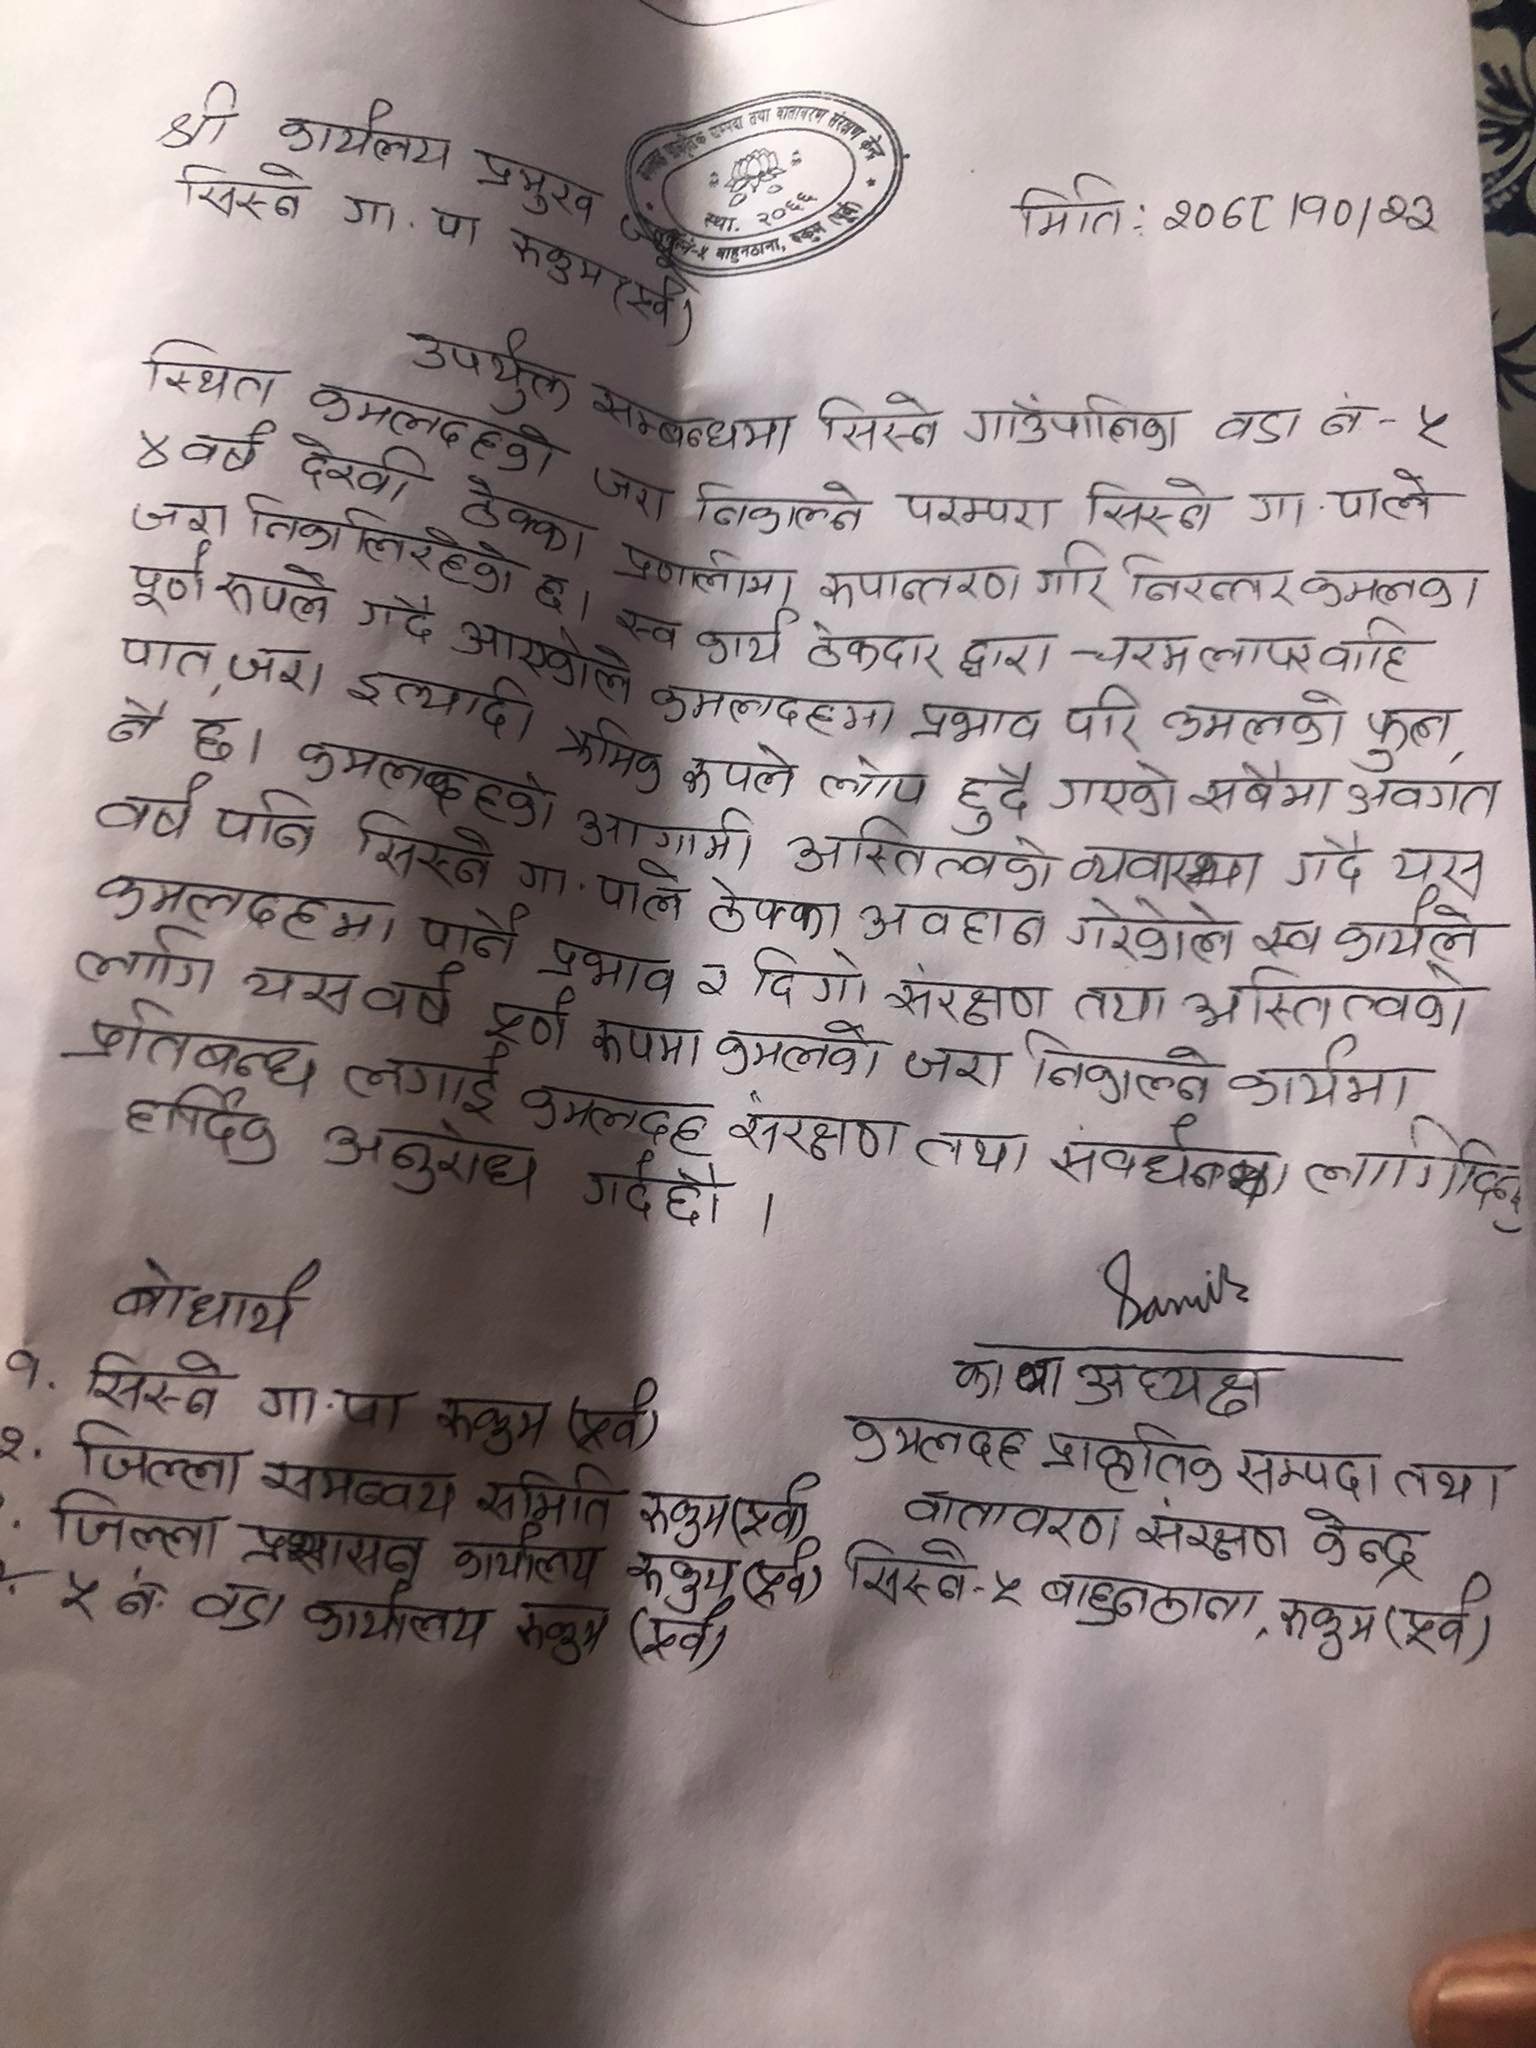 श्री कार्यलय प्रमुख ज्यू
सिस्ने गा.पा रुकुम (पूर्व)
प्राकृतिक सम्पदा तथा वातावरण संरक्षण केन्द्र
स्था. २०६६
बाहुनठाना, रुकुम (पूर्व)
मिति: २०७८/१०/२३
उपर्युक्त सम्बन्धमा सिस्ने गाउँपालिका वडा नं-५
स्थित कमलदहको जरा निकाल्ने परम्परा सिस्ने गा.पाले
४ वर्ष देखी ठेक्का प्रणालीमा रूपान्तरण गरि निरन्तर कमलका
जरा निकालिरहेको छ। स्व कार्य ठेकदार द्वारा चरम लापरवाहि
पूर्ण रूपले गर्दै आएकोले कमलदहमा प्रभाव परि कमलको फुल,
पात, जरा इत्यादी क्रमिक रूपले लोप हुदै गएको सबैमा अवगत
नै छ। कमलदहको आगामी अस्तित्वको व्यवास्था गर्दै यस
वर्ष पनि सिस्ने गा.पाले ठेक्का अवहान गरेकोले स्व कार्यले
कमलदहमा पार्ने प्रभाव र दिगो संरक्षण तथा अस्तित्वको
लागि यस वर्ष पूर्ण रूपमा कमलको जरा निकाल्ने कार्यमा
प्रतिबन्ध लगाई कमलदह संरक्षण तथा संवर्धनका लागि दिनहु
हार्दिक अनुरोध गर्दछौ ।
बोधार्थ
१. सिस्ने गा.पा रुकुम (पूर्व)
२. जिल्ला समन्वय समिति रुकुम (पूर्व)
. जिल्ला प्रशासन कार्यालय रुकुम (पूर्व)
५ नं. वडा कार्यालय रुकुम (पूर्व)
Samir
का वा अध्यक्ष
कमलदह प्राकृतिक सम्पदा तथा
वातावरण संरक्षण केन्द्र
सिस्ने-५ बाहुनठाना, रुकुम (पूर्व)